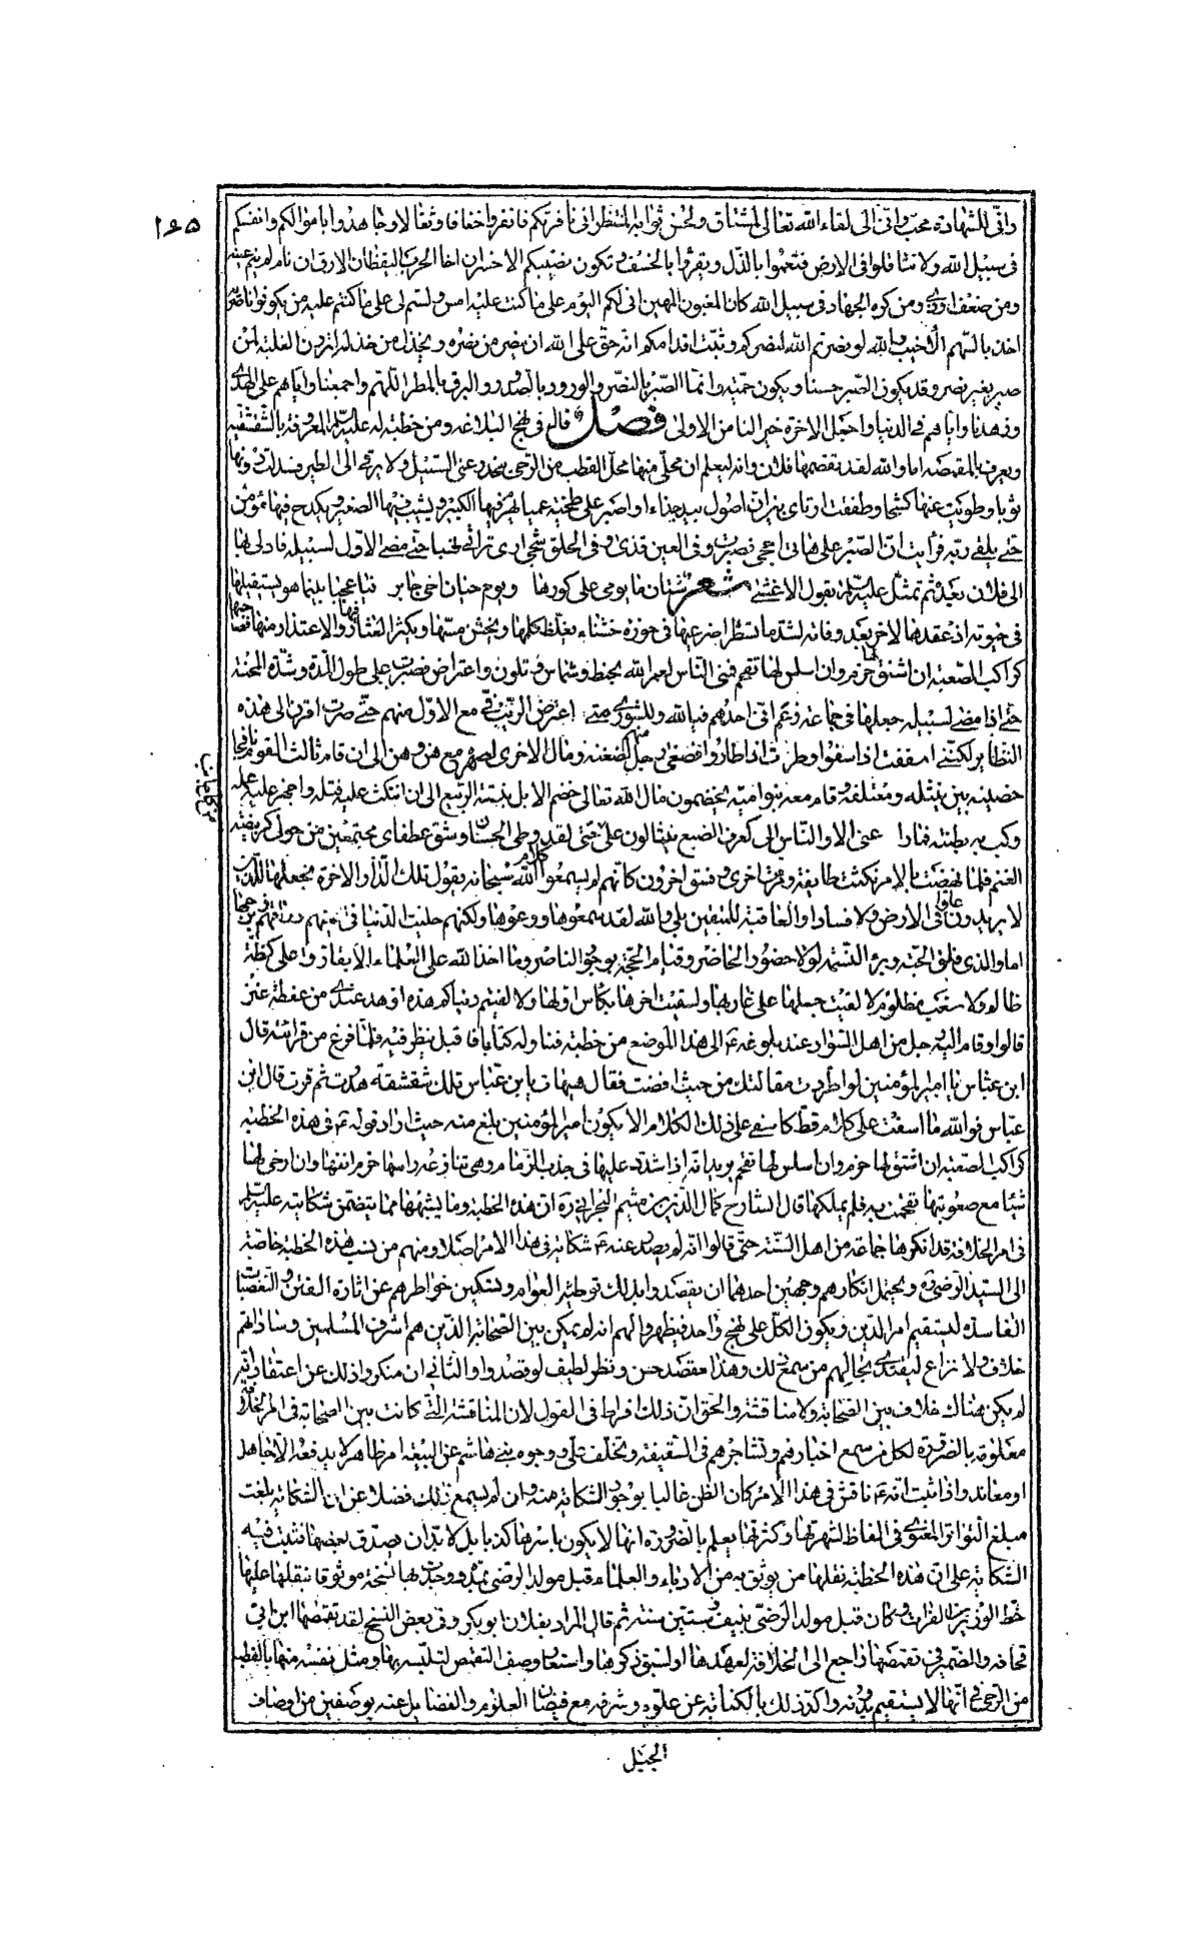 ١٦٥
وانّى للشهادة محبّ وانّى الى لقاء الله تعالى لمشتاق ولحسن ثوابه لمنتظر انى نافرتكم فانفروا خفافا وثقالا وجاهدوا باموالكم وانفسكم
فى سبيل الله ولا تثاقلوا فى الارض فتعموا بالذّل وتقرّوا بالخسف وتكون نصيبكم الاخسران اخا الحرب اليقظان الارق ان نام لم ينم عينه
ومن ضعف اودى ومن كره الجهاد فى سبيل الله كان المغبون المهين انى لكم اليوم على ما كنت عليه امس ولستم لى على ما كنتم عليه من يكونوا ناصريه
اخذ بالسّهم الاخيب والله لو نصرتم الله لنصركم وثبّت اقدامكم انه حق على الله ان ينصر من نصره ويخذل من خذله اترون الغلبة لمن
صبر بغير نصر وقد يكون الصّبر جبنا ويكون حميّة وانما الصّبر بالنصر والورود بالصدور والبرق بالمطر اللهم واجمعنا واياهم على الهدى
وزهدنا واياهم فى الدنيا واجعل الاخرة خير لنا من الاولى فصل قال فى نهج البلاغه ومن خطبة له عليه السّلم المعروفة بالشقشقيه
ويعرف بالمقمصه اما والله لقد تقمصها فلان وانه ليعلم ان محلّى منها محلّ القطب من الرّحى ينحدر عنى السّيل ولا يرقى الى الطير فسدلت دونها
ثوبا وطويت عنها كشحا وطفقت ارتاى بين ان اصول بيد جذاء او اصبر على طخية عمياء يهرم فيها الكبير ويشيب فيها الصغير ويكدح فيها مؤمن
حتى يلقى ربّه فرايت انّ الصّبر على هاتى احجى فصبرت وفى العين قذى وفى الحلق شجى ارى تراثى نهبا حتى مضى الاوّل لسبيله فادلى بها
الى فلان بعده ثم تمثّل عليه السّلم بقول الاعشى شعر شتان ما يومى على كورها ويوم حيان اخى جابر فيا عجبا بينا هو يستقيلها
فى حيوته اذ عقدها لاخر بعد وفاته لشدّ ما تشطّرا ضرعيها فى حوزة خشناء يغلظ كلمها ويخشن مسّها ويكثر العثار فيها والاعتذار منها فصاحبها
كراكب الصّعبة ان اشنق لها خرم وان اسلس لها تقحم فمنى النّاس لعمر الله بخبط وشماس وتلون واعتراض فصبرت على طول المدّة وشدّة المحنة
حتى اذا مضى لسبيله جعلها فى جماعة زعم انّى احدهم فيا لله وللشورى متى اعترض الرّيب فىّ مع الاوّل منهم حتى صرت اقرن الى هذه
النظاير لكنّى اسففت اذ اسفوا وطرت اذ طاروا فصغى رجل منهم لضغنه ومال الاخرى لصهره مع هن وهن الى ان قام ثالث القوم نافجا
حضنيه بين نثيله ومعتلفه وقام معه بنو اميّة يخضمون مال الله تعالى خضم الابل نبتة الرّبيع الى ان انتكث عليه فتله واجهز عليه عمله
وكبت به بطنته فما راعنى الا والنّاس الى كعرف الضبع ينثالون علىّ حتى لقد وطى الحسنان وشق عطفاى مجتمعين من حولى كربيضة
الغنم فلمّا نهضت بالامر نكثت طايفة ومرقت اخرى وفسق اخرون كانّهم لم يسمعوا كلام الله سبحانه يقول تلك الدّار الاخرة نجعلها للّذين
لا يريدون علوا فى الارض ولا فسادا والعاقبة للمتقين بلى والله لقد سمعوها ووعوها ولكنهم حليت الدّنيا فى اعينهم وراقهم زبرجها
اما والذى فلق الحبّة وبرا النّسمة لولا حضور الحاضر وقيام الحجّة بوجود الناصر وما اخذ الله على العلماء الا يقارّوا على كظّة
ظالم ولا سغب مظلوم لالقيت حبلها على غاربها ولسقيت اخرها بكاس اولها ولالفيتم دنياكم هذه ازهد عندى من عفطة عنز
قالوا وقام اليه رجل من اهل السّواد عند بلوغه ع الى هذا الموضع من خطبته فناوله كتابا فاقبل ينظر فيه فلمّا فرغ من قرائته قال
ابن عبّاس يا امير المؤمنين لو اطردت مقالتك من حيث افضت فقال هيهات يا بن عبّاس تلك شقشقة هدرت ثم قرت قال ابن
عبّاس فو الله ما اسفت على كلام قطّ كاسفى على ذلك الكلام الا يكون امير المؤمنين بلغ منه حيث اراد قوله ع فى هذه الخطبة
كراكب الصّعبة ان اشنق لها خرم وان اسلس لها تقحم يريد انه اذا شدّد عليها فى جذب الزّمام وهى تنازعه راسها خرم انفها وان ارخى لها
شيئا مع صعوبتها تقحمت به فلم يملكها قال الشارح كمال الدّين بن ميثم البحرانى ره ان هذه الخطبة وما يشبهها مما يتضمن شكايته عليه السّلم
فى امر الخلافة قد انكرها جماعة من اهل السّنة حتى قالوا انّه لم يصدر عنه ع شكاية فى هذا الامر اصلا ومنهم من نسب هذه الخطبة خاصّة
الى السيّد الرّضى ره ويحتمل انكارهم وجهين احدهما ان يقصدوا بذلك توطئة العوام وتسكين خواطرهم عن اثارة الفتن والتعصّبات
الفاسدة ليستقيم امر الدّين ويكون الكلّ على نهج واحد فيظهروا لهم انه لم يكن بين الصّحابة الّذين هم اشرف المسلمين وساداتهم
خلاف ولا نزاع ليقتدى بحالهم من سمع ذلك وهذا مقصد حسن ونظر لطيف لو قصدوا والثانى ان ينكروا ذلك عن اعتقاد انه
لم يكن هناك خلاف بين الصّحابة ولا منافشة والحق انّ ذلك افراط فى القول لان المناقشة الّتى كانت بين الصحابة فى امر الخلافة
معلومة بالضّرورة لكل من سمع اخبارهم وتشاجرهم فى السّقيفة وتخلف علىّ ووجوه بنى هاشم عن البيعة امر ظاهر لا يدفعه الا جاهل
او معاند واذا ثبت انه ع ناقش فى هذا الامر كان الظن غالبا بوجود الشكاية منه وان لم يسمع ذلك فضلا عن ان الشكاية بلغت
مبلغ التّواتر المعنوى فى الفاظ لشهرتها وكثرتها يعلم بالضّرورة انها لا يكون باسرها كذبا بل لا بدّ ان يصدق بعضها فثبت فيه
الشكاية على ان هذه الخطبة نقلها من يوثق به من الادباء والعلماء قبل مولد الرّضى بمدّة ووجدت بها نسخة موثوقا بنقلها عليها
خطّ الوزير بن الفرات وكان قبل مولد الرّضى بنيف وستين سنة ثم قال المراد بفلان ابو بكر وفى بعض النّسخ لقد تقمّصها ابن ابى
قحافه والضّمير فى تقمّصها راجع الى الخلافة لعهدها او لسبق ذكرها واستعار وصف التقمّص لتلبّسه بها ومثّل نفسه منها بالقطب
من الرحى فى انّها لا يستقيم بدونه واكّد ذلك بالكناية عن علوّه وشرفه مع فيضان العلوم والفضايل عنه بوصفين من اوصاف
الجبل